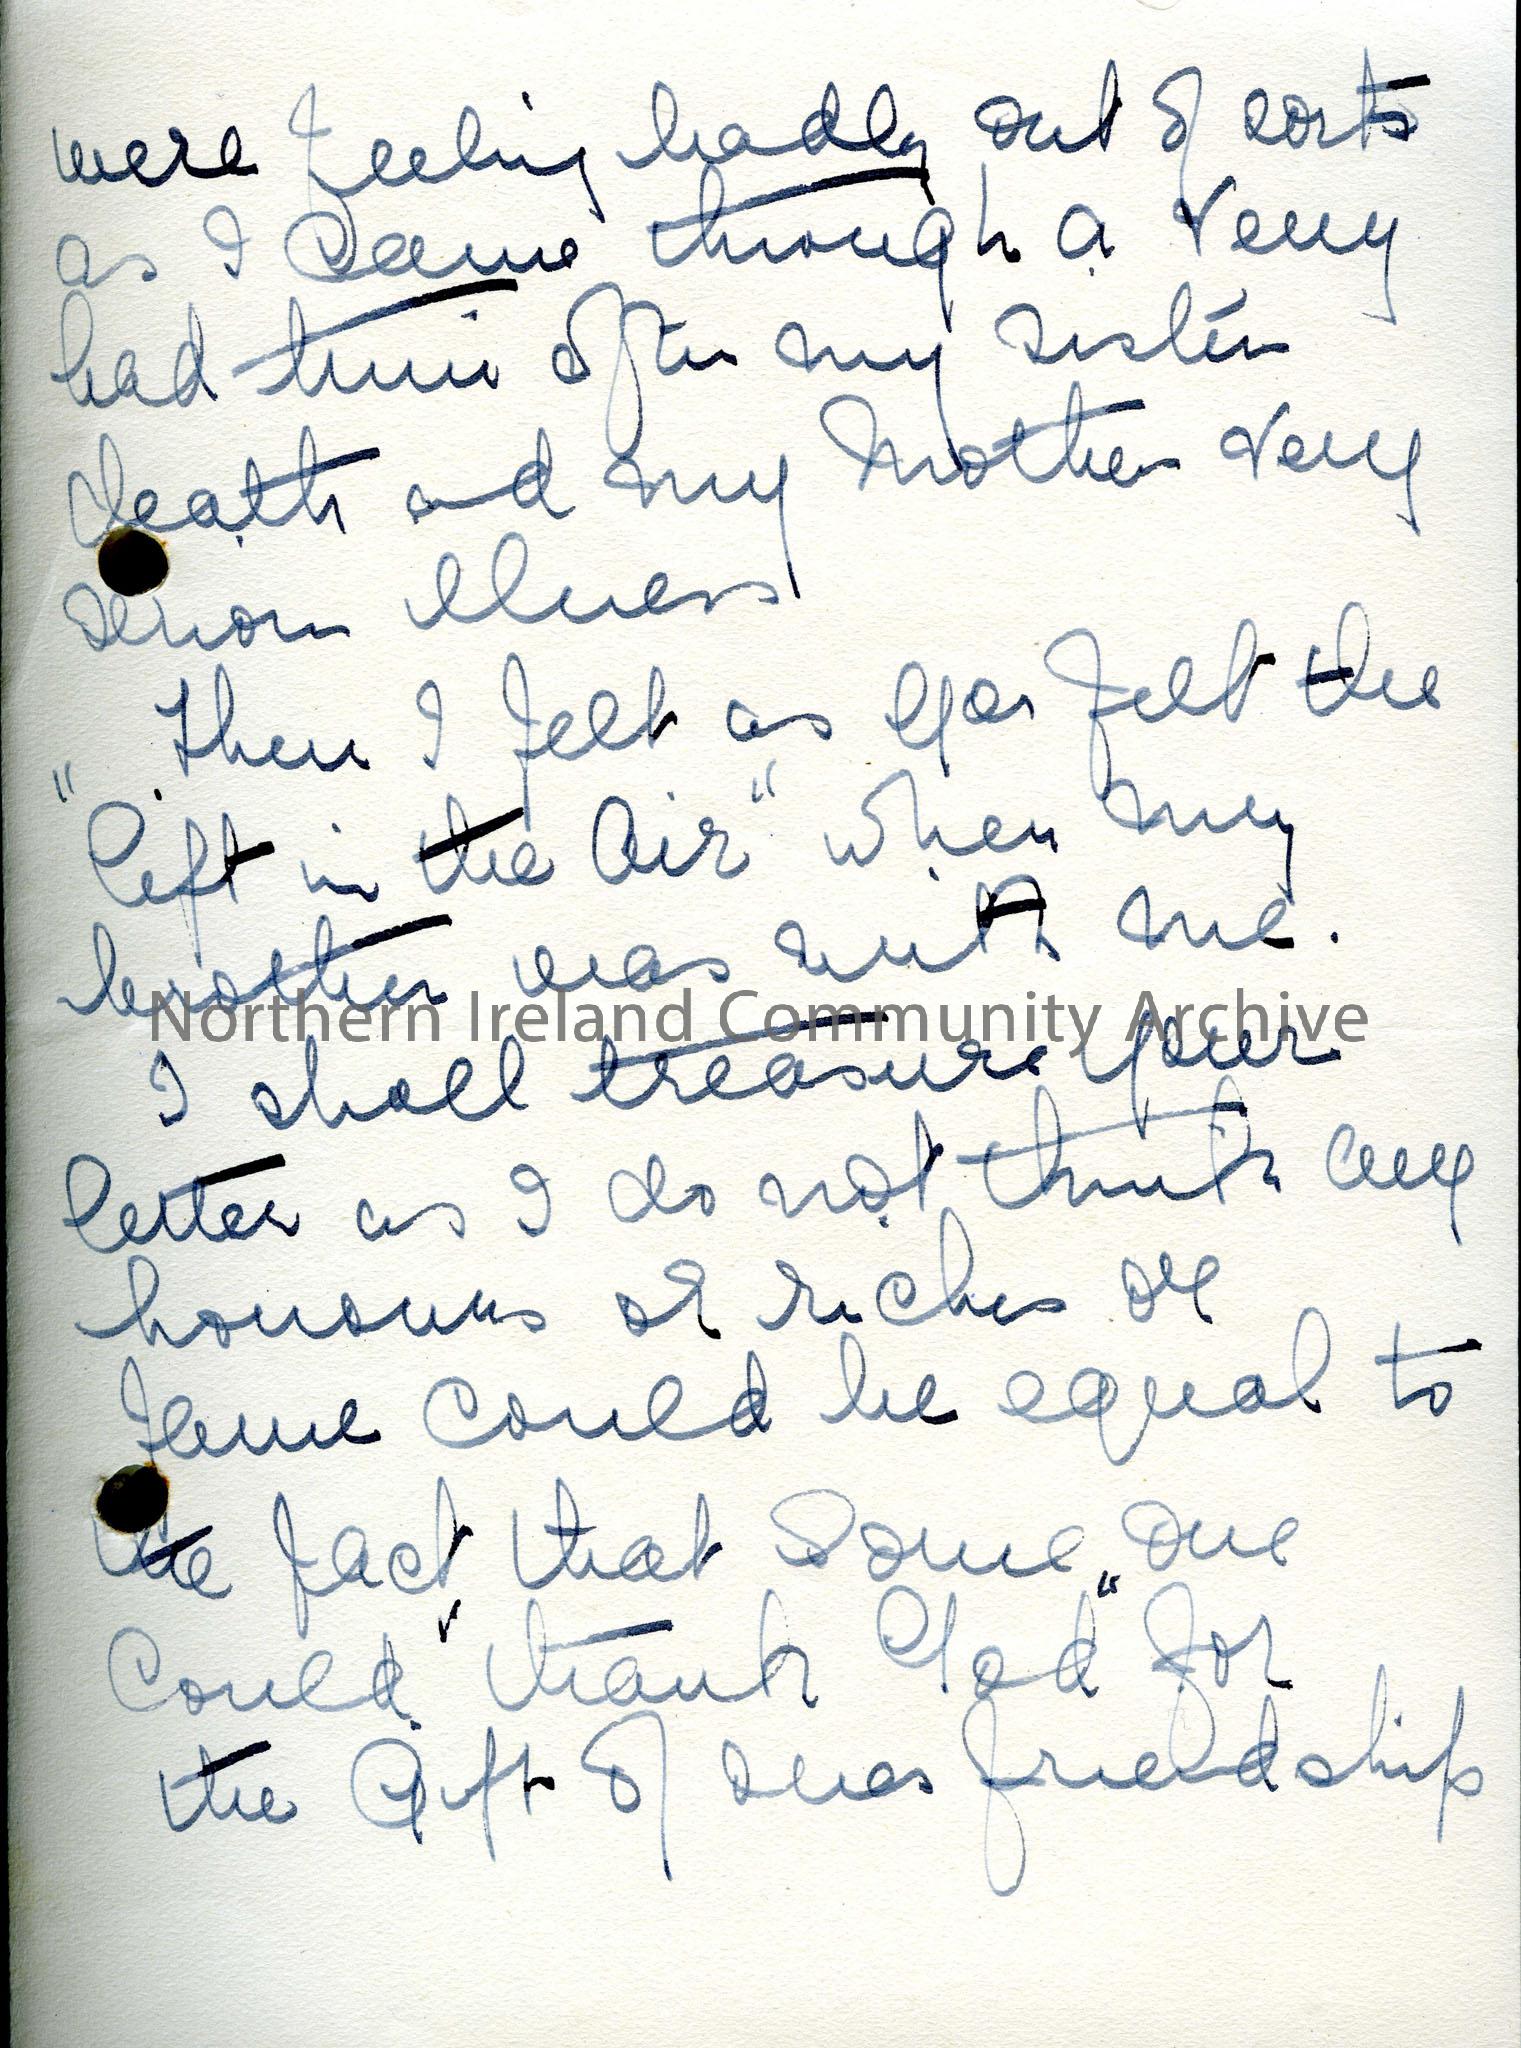 were feeling badly out of sorts
as I came through a very
bad time after my sister
death and my Mother very
serious illness
Then I felt as you felt the
"lift in the Air" when my
brother was with me.
Northern Ireland Community Archive
I shall treasure your
letter as I do not think any
honours or riches or
fame could be equal to
the fact that some one
could "thank God" for
the Gift of ones friendship